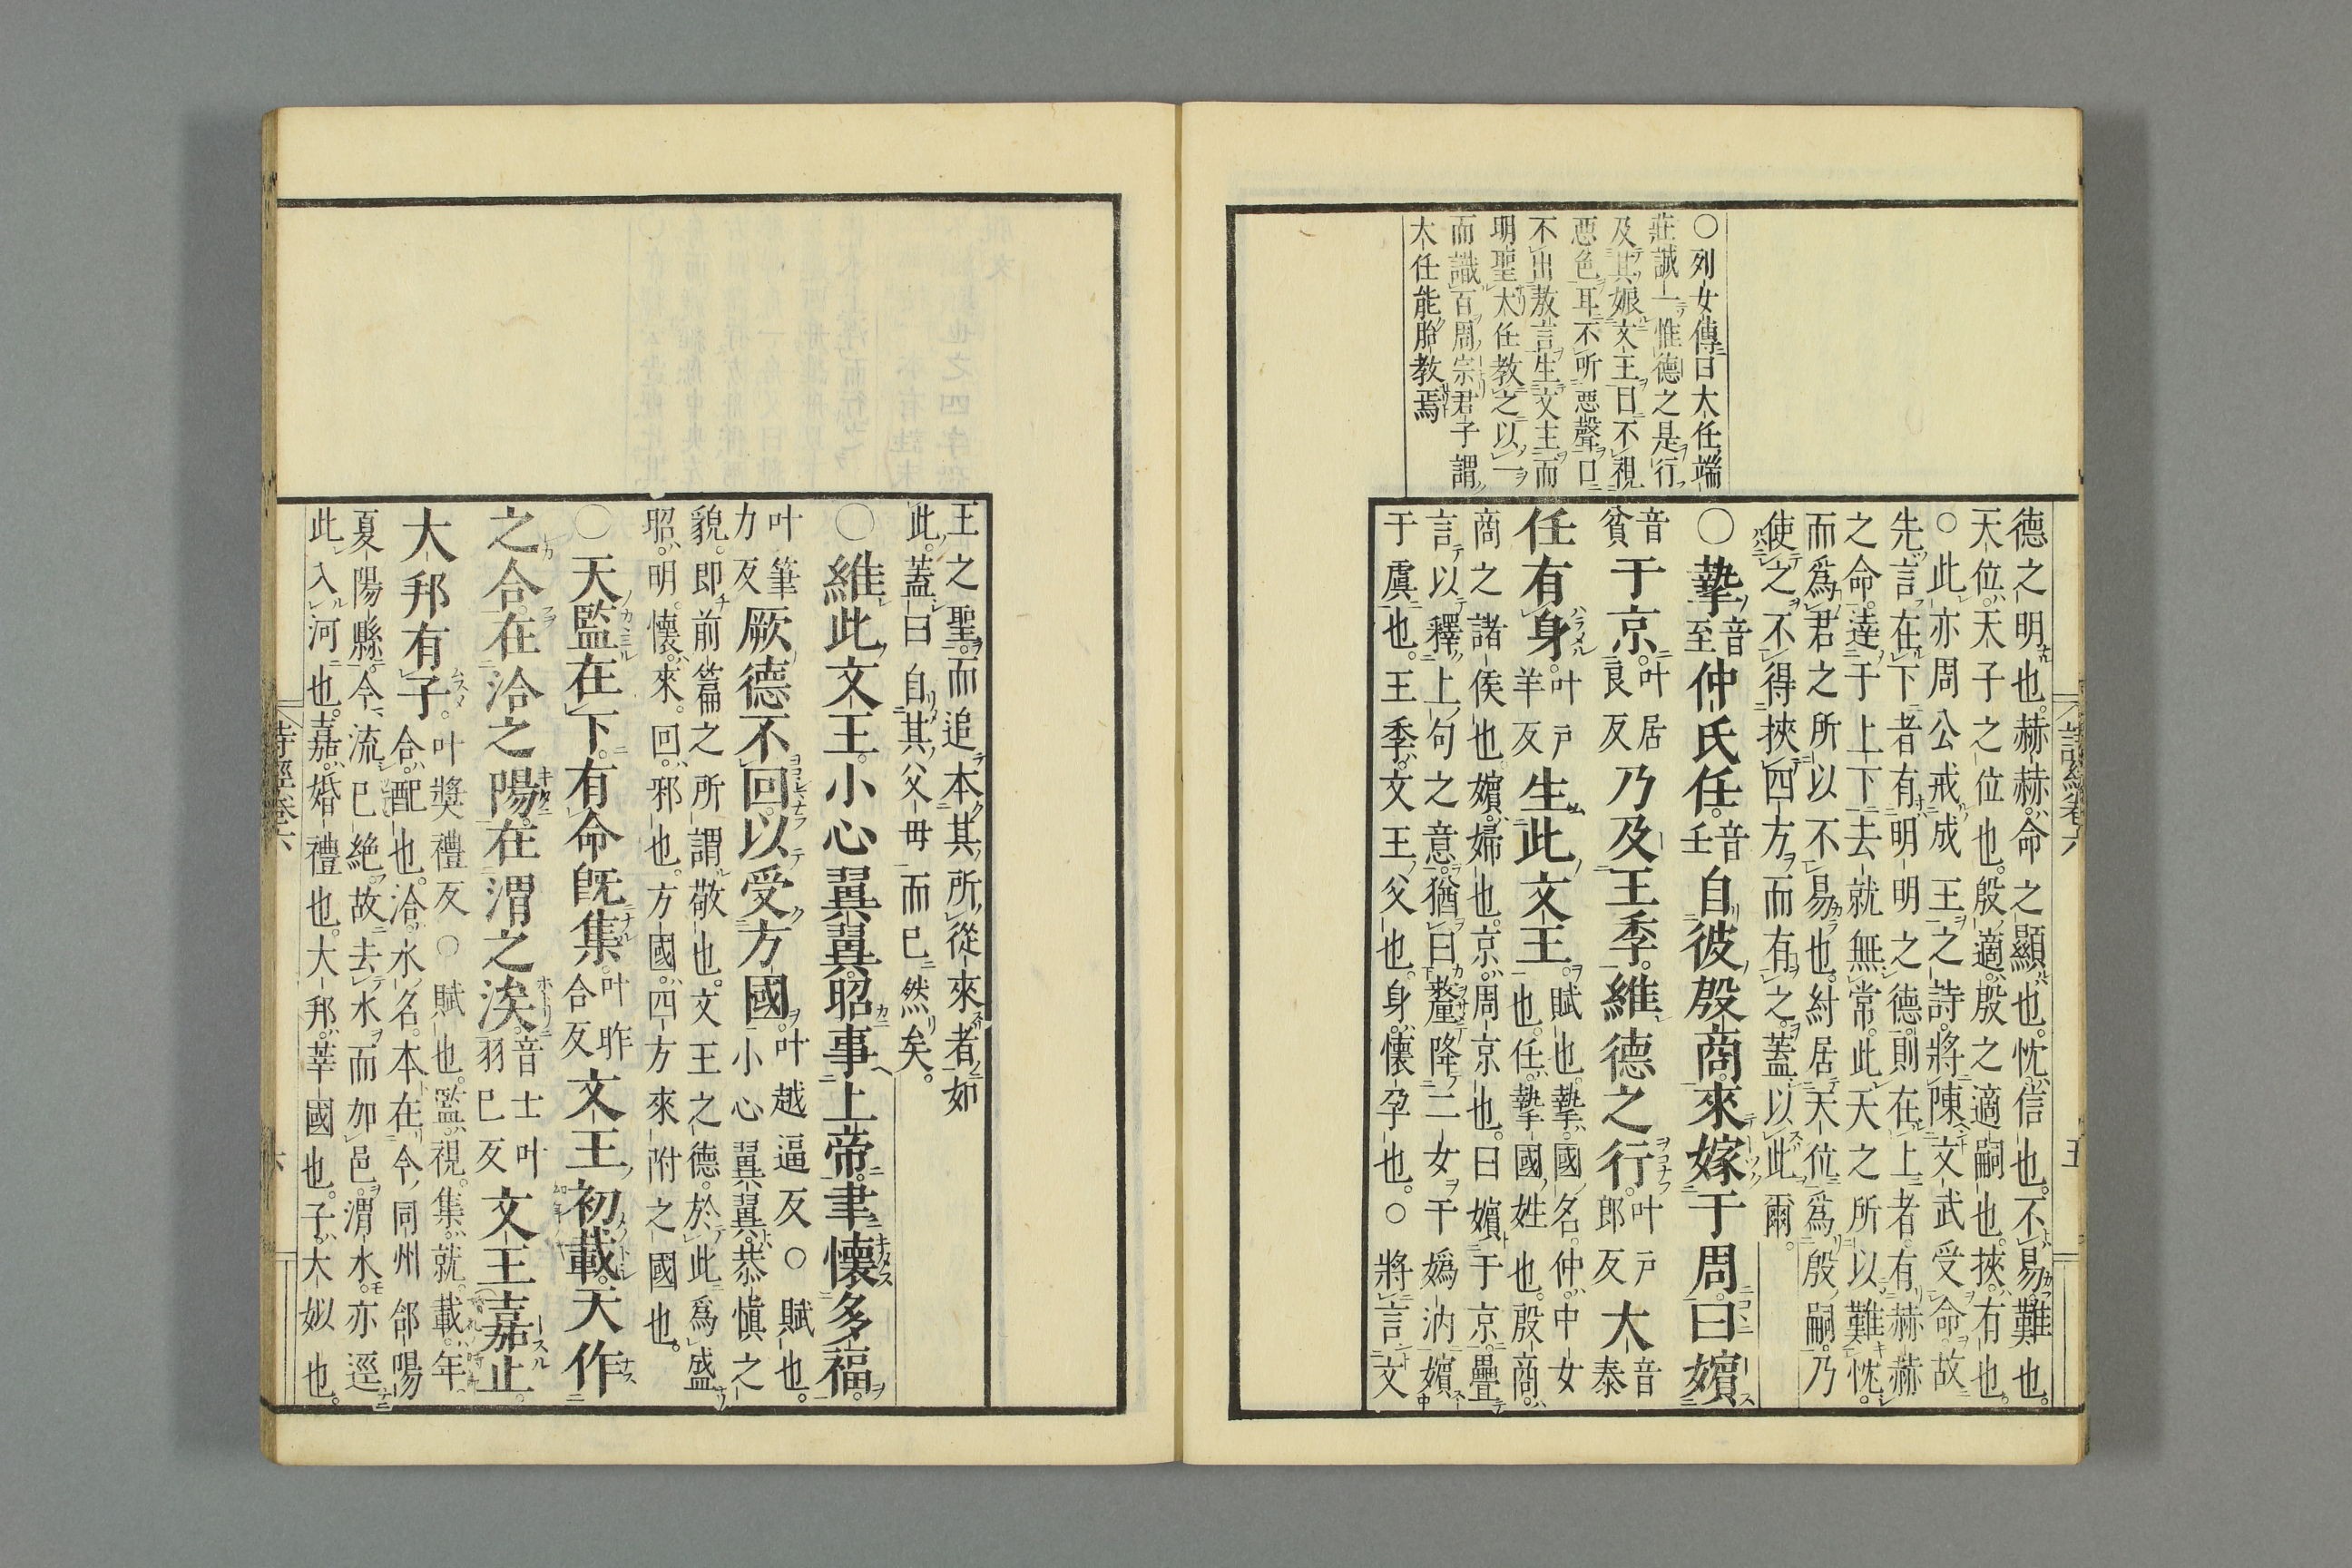 詩經卷六
五
○列女傳曰大任端
莊誠一惟德之是行
及其娠文王目不視
惡色耳不听惡聲口
不出敖言生文王而
明聖大任教之以一
而識百周宗君子謂
大任能胎教焉
德之明也。赫赫。命之顯也。忱。信也。不易。難也。
天位。天子之位也。殷適。殷之適嗣也。挾。有也。
○此亦周公戒成王之詩。將陳文武受命。故
先言在下者有明明之德。則在上者。有赫赫
之命。達于上下。去就無常。此天之所以難忱。
而爲君之所以不易也。紂居天位。爲殷嗣。乃
使之不得挾四方而有之。蓋以此爾。
○摯音至仲氏任。音壬自彼殷商。來嫁于周。曰嬪
音貧于京。叶居良反乃及王季。維德之行。叶戸郎反大音泰
任有身。叶戸羊反生此文王。賦也。摯。國名。仲。中女
也。任。摯國姓也。殷商。
商之諸侯也。嬪。婦也。京。周京也。曰嬪于京。疊
言以釋上句之意。猶曰釐降二女于嬀汭嬪
于虞也。王季。文王父也。身。懷孕也。○將言文
王之聖。而追本其所從來者如
此。蓋曰自其父母而已然矣。
○維此文王。小心翼翼。昭事上帝。聿懷多福。
叶筆力反厥德不回。以受方國。叶越逼反○賦也。
小心翼翼。恭愼之
貌。即前篇之所謂敬也。文王之德。於此爲盛
昭。明。懷。來。回。邪也。方國。四方來附之國也。
○天監在下。有命旣集。叶昨合反文王初載。天作
之合。在洽之陽。在渭之涘。音士叶羽已反文王嘉止。
大邦有子。叶奬禮反○賦也。監。視。集。就。載。年。
合。配也。洽。水名。本在今同州郃陽
夏陽縣。今流已絕。故去水而加邑。渭水。亦逕
此入河也。嘉。婚禮也。大邦。莘國也。子。大姒也。
詩經卷六
六